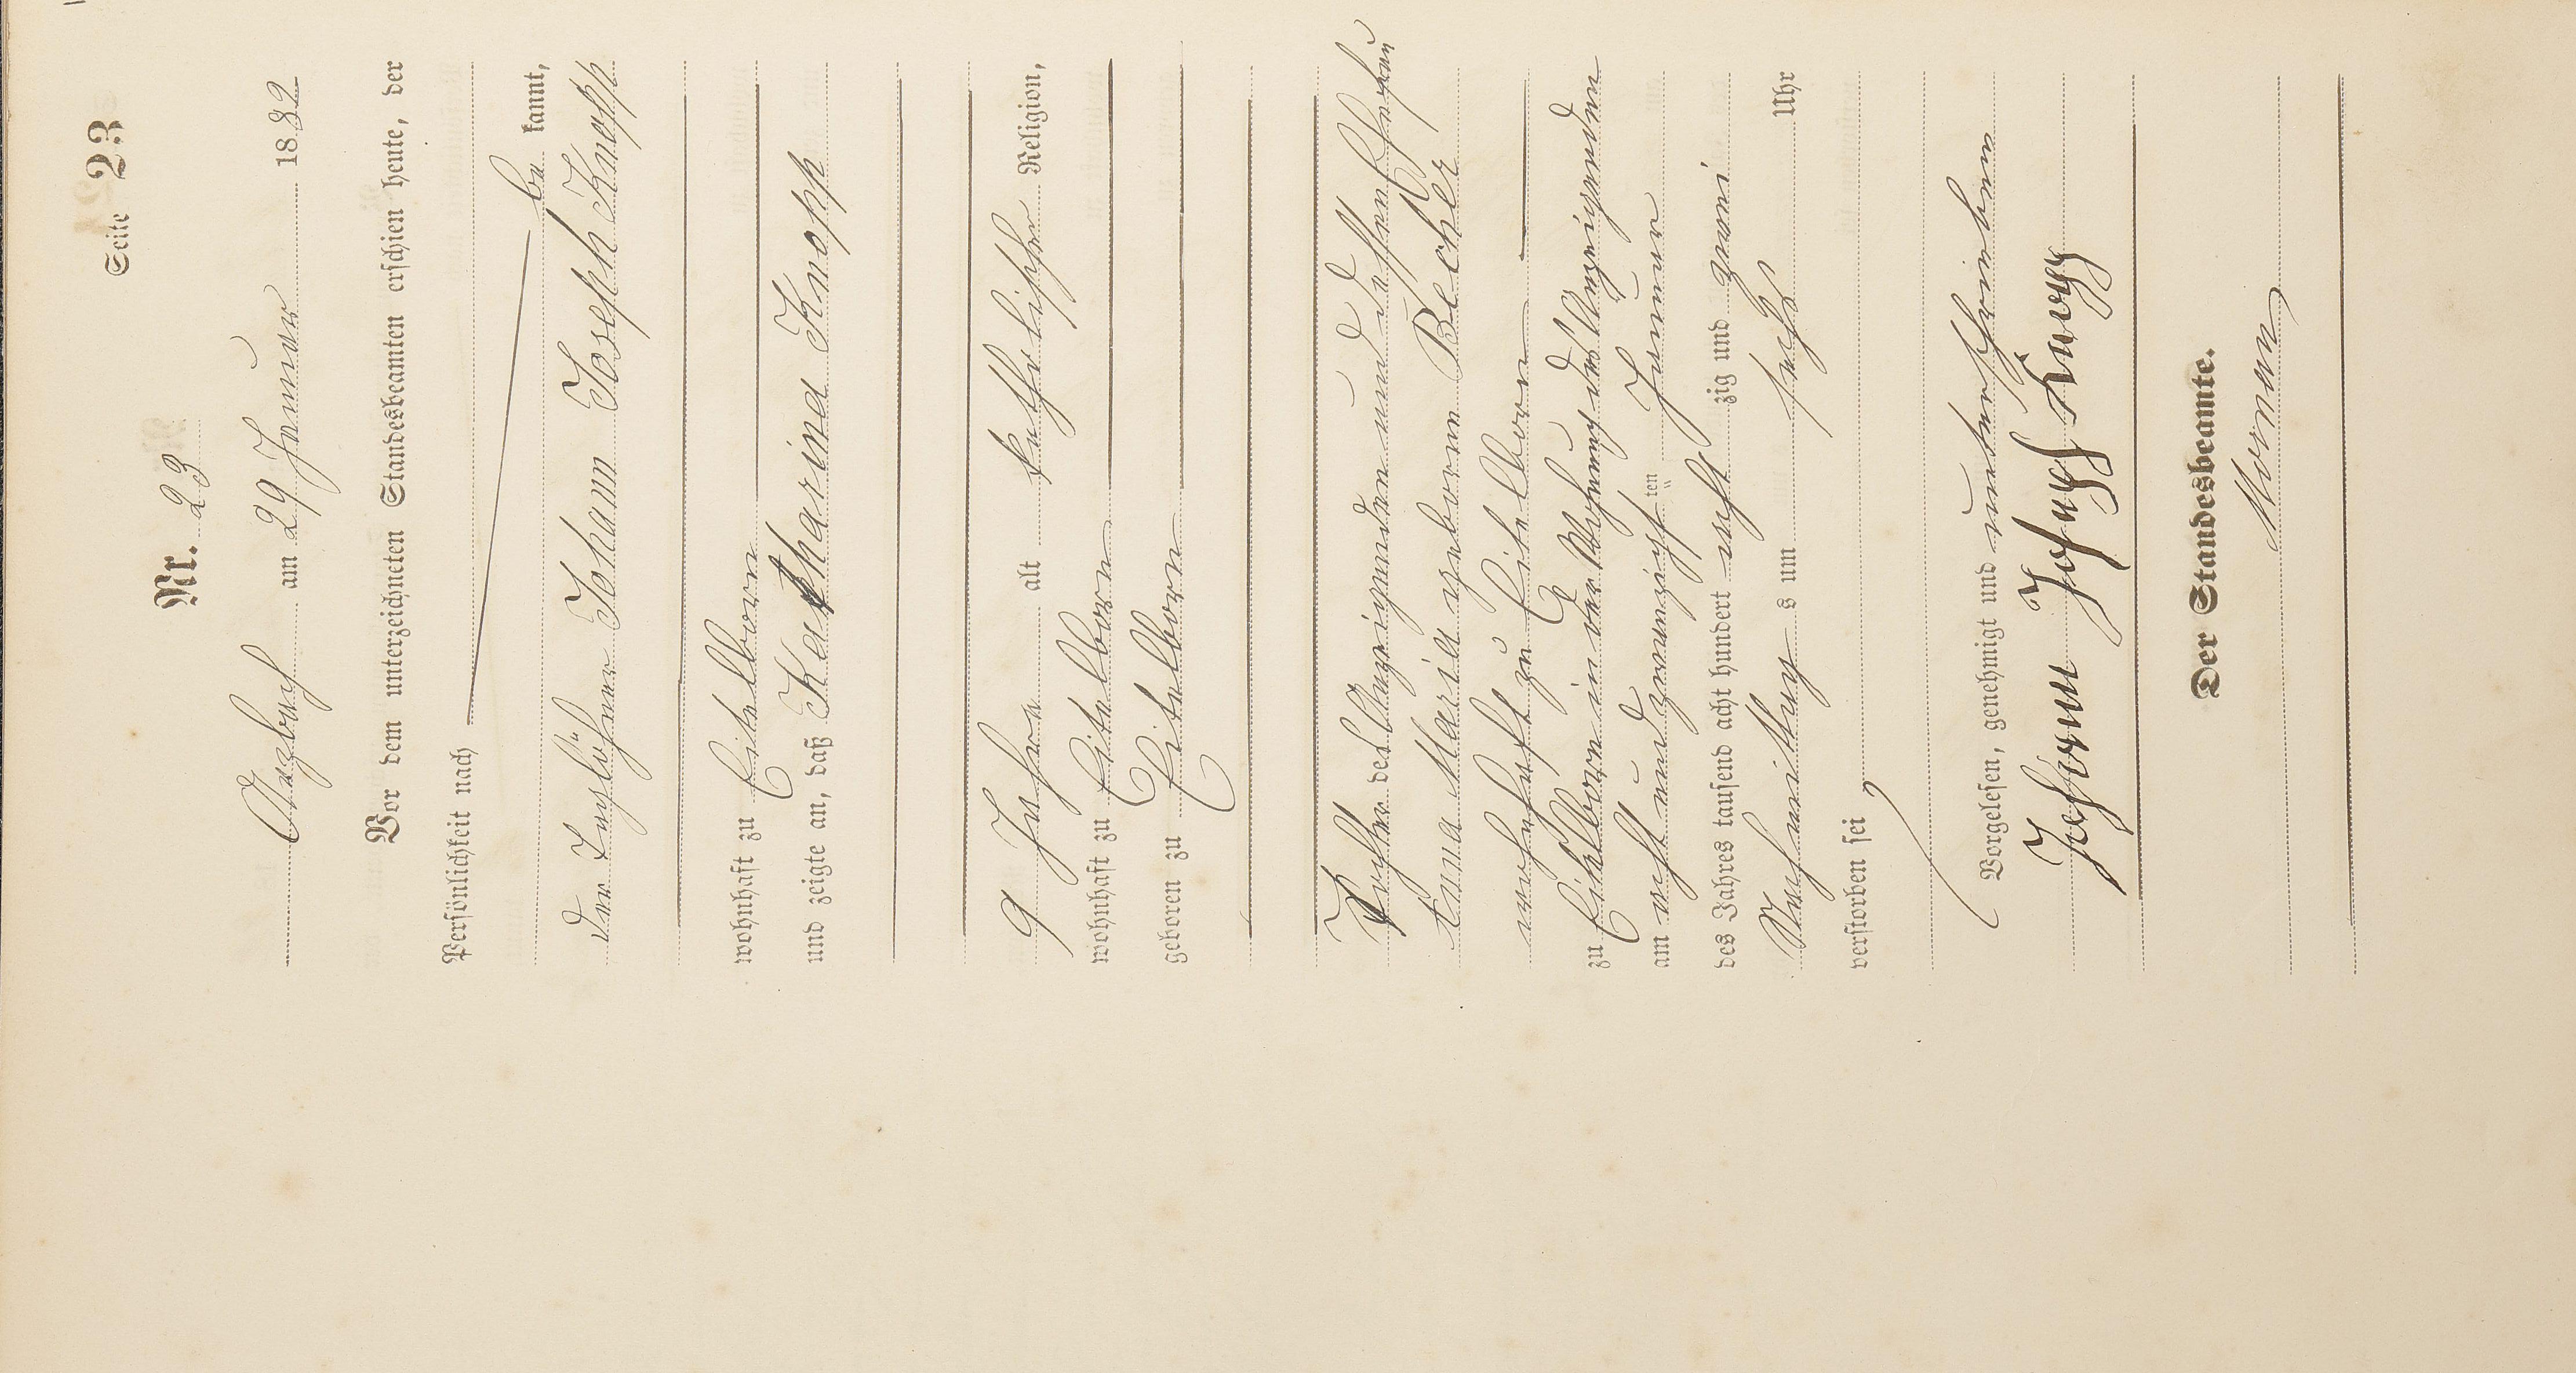 Seite 23
Nr. 23
Arzbach am 29 Januar 1882
Vor dem unterzeichneten Standesbeamten erschien heute, der
Persönlichkeit nach
be kannt,
der Taglöhner Johann Joseph Knopp
wohnhaft zu Eitelborn
und zeigte an, daß Katharina Knopp
9 Jahre alt katholischer Religion,
wohnhaft zu Eitelborn
geboren zu Eitelborn
Tochter des Anzeigenden und dessen Ehefrau
Anna Maria geborene Becher
wohnhaft zu Eitelborn
zu Eitelborn in der Wohnung des Anzeigenden
am acht und zwanzigst ten Januar
des Jahres tausend acht hundert acht zig und zwei
Nachmittag s um sechs Uhr
verstorben sei
Vorgelesen, genehmigt und unterschrieben
Johann Joseph Knopp
Der Standesbeamte.